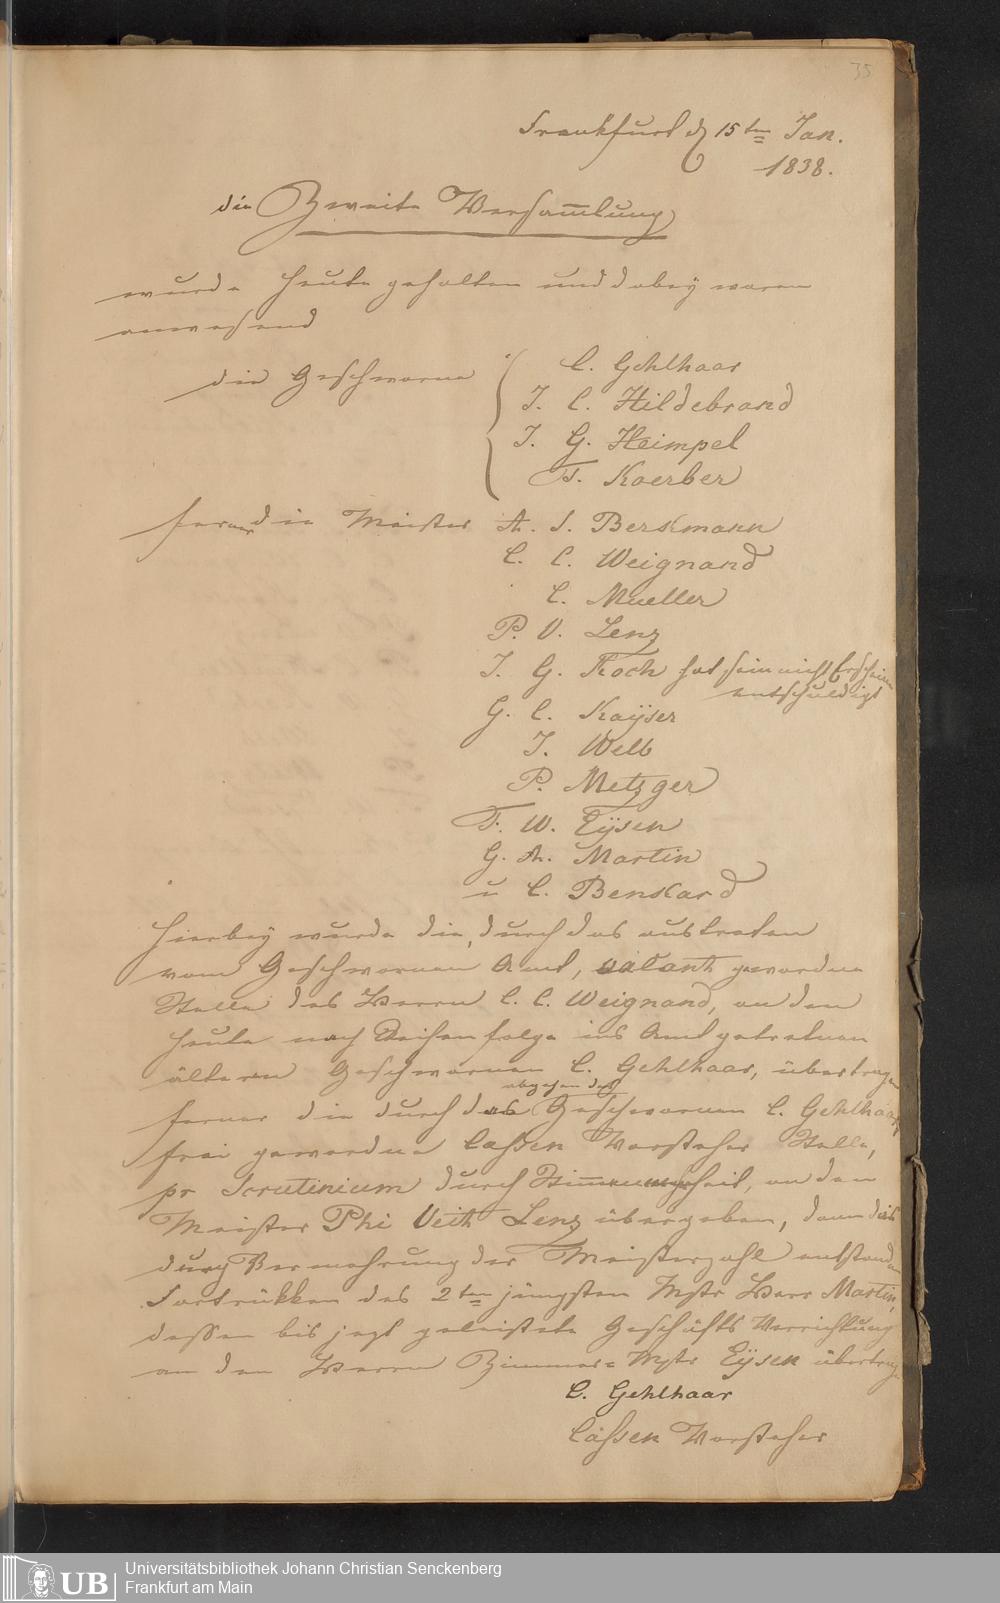 35
Frankfurt d 15ten Jan.
1838.
die Zweite Versam̅lung
wurde heute gehalten und dabey waren
anwesend
die Geschworne
C. Gehlhaar
J. C. Hildebrand
J. G. Heimpel
F. Koerber
ferner die Meister A. J. Berkmann
C. C. Weignand
C. Mueller
P. V. Lenz
J. G. Koch hat sein nicht Erscheinen
entschuldigt
G. C. Kaÿser
J. Welb
P. Metzger
F. W. Eÿsen
G. A. Martin
u C. Benkard
Hierbey wurde die, durch das austreten
vom Geschwornen Amt, vakant gewordne
Stelle des Herrn C. C. Weignand, an den
heute nach Reihenfolge ins Amt getretnen
älteren Geschwornen C. Gehlhaar, übertragen
abgehen des
ferner die durch das Geschwornen C. Gehlhaar
frei gewordne Cassen Vorsteher Stelle,
pr Scrutinium durch Stimmenmehrheit, an den
Meister Phi Veith Lenz übergeben, dann das
durch Vermehrung der Meisterzahl entstanden
Fortrükken des 2ten jüngsten Mstr Herr Martin,
dessen bis jezt geleistete Geschäfts Verrichtung
an den Herrn Zimmer-Mstr Eÿsen übertrag
C. Gehlhaar
Cassen Vorsteher
UB
Universitätsbibliothek Johann Christian Senckenberg
Frankfurt am Main